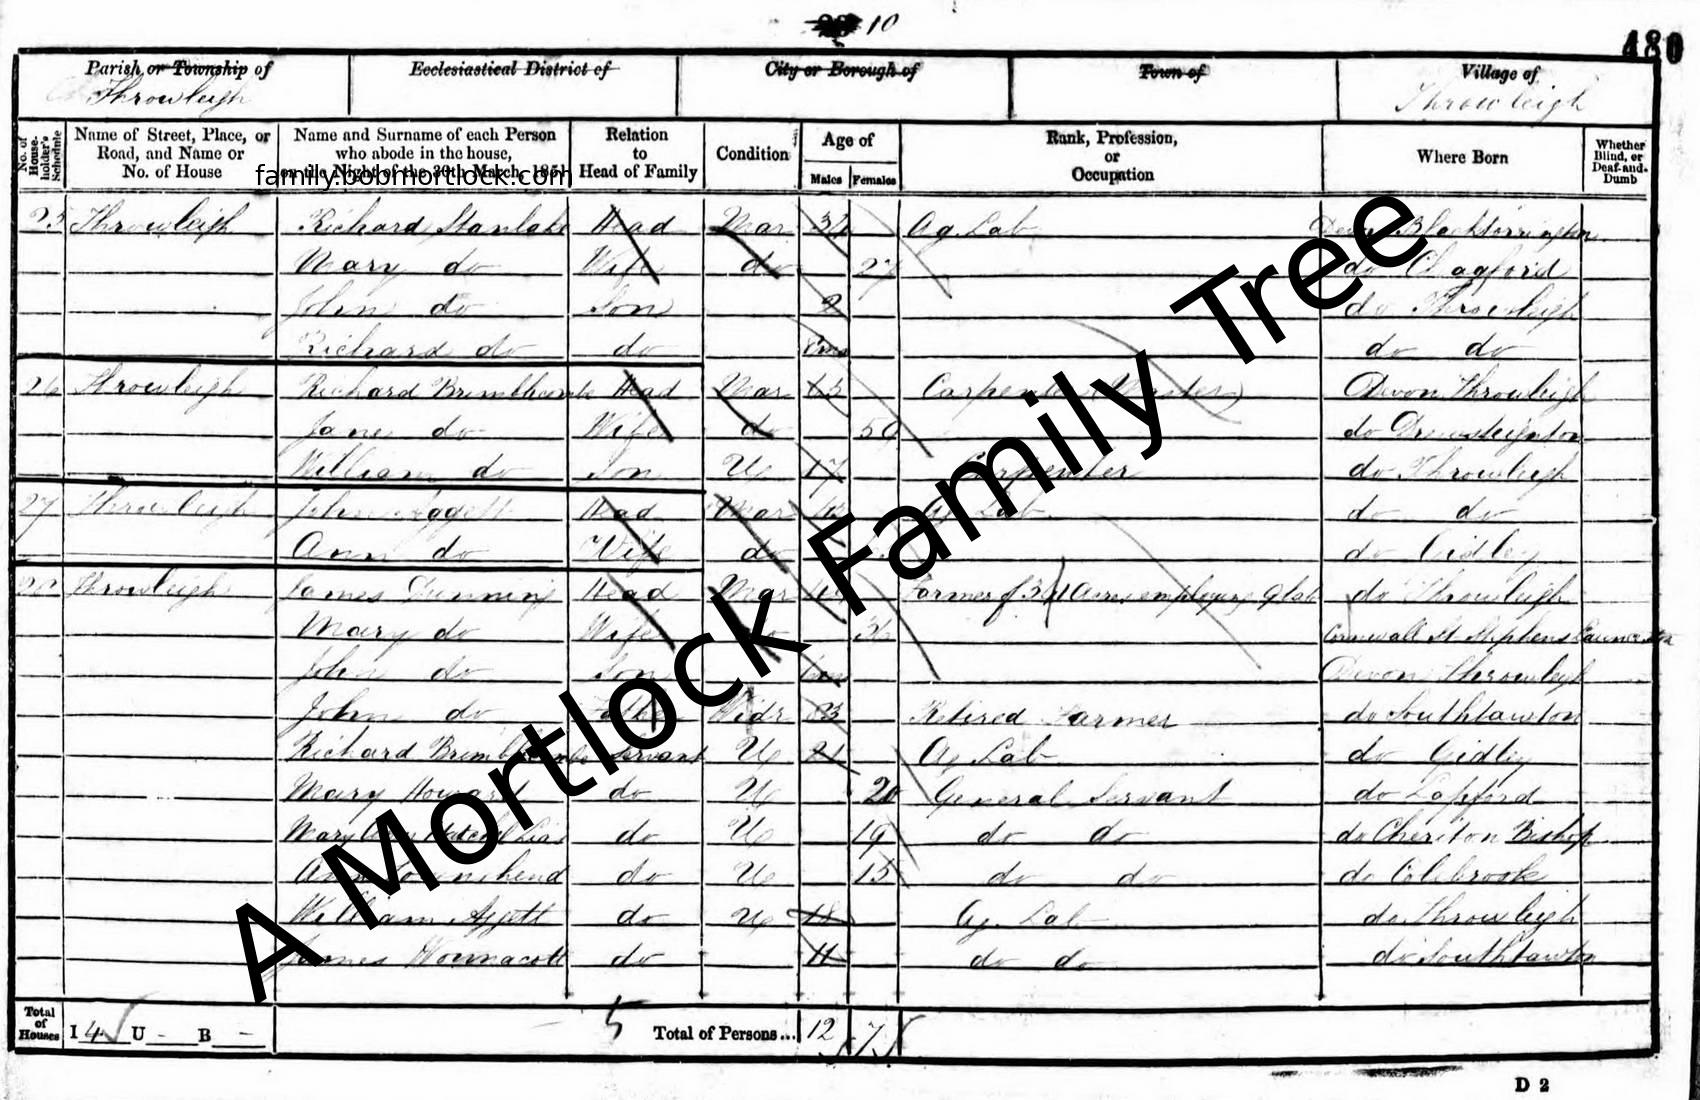 10
480
Parish or Township of Ecclesiastical District of City or Borough of Town of Village of
Throwleigh Throwleigh
No. of House-holder's Schedule Name of Street, Place, or Road, and Name or No. of House Name and Surname of each Person who abode in the house, on the Night of the 30th March, 1851 Relation to Head of Family Condition Age of Males Females Rank, Profession, or Occupation Where Born Whether Blind, or Deaf-and-Dumb
family.bobmortlock.com
25 Throwleigh Richard Stanlake Head Mar Ag. Lab Devon Blacktorrington
Mary do Wife do 27 do Chagford
John do Son 2 do Throwleigh
Richard do do do do
26 Throwleigh Richard Brimblecombe Head Mar Carpenter Master Devon Throwleigh
Jane do Wife do do Drewsteignton
William do Son U 17 Carpenter do Throwleigh
27 Throwleigh John Head Mar Ag Lab do do
Ann do Wife do do Gidley
Throwleigh James Dunning Head Mar Farmer of Acres employing 9 lab do Throwleigh
Mary do Wife do 36 Cornwall St Stephens Launceston
John do Son Devon Throwleigh
John do Father Widr 83 Retired Farmer do Southtawton
Richard Brimblecombe Servant U 21 Ag Lab do Gidley
Mary Howard do U 20 General Servant do Lapford
Mary Ann do U 19 do do do Cheriton Bishop
Ann Townshend do U 15 do do do Colebrook
William Aggett do U 18 Ag. Lab do Throwleigh
James Wonnacott do 11 do do do Southtawton
Total of Houses I 4 U - B - 5 Total of Persons... 12 7
D 2
A Mortlock Family Tree